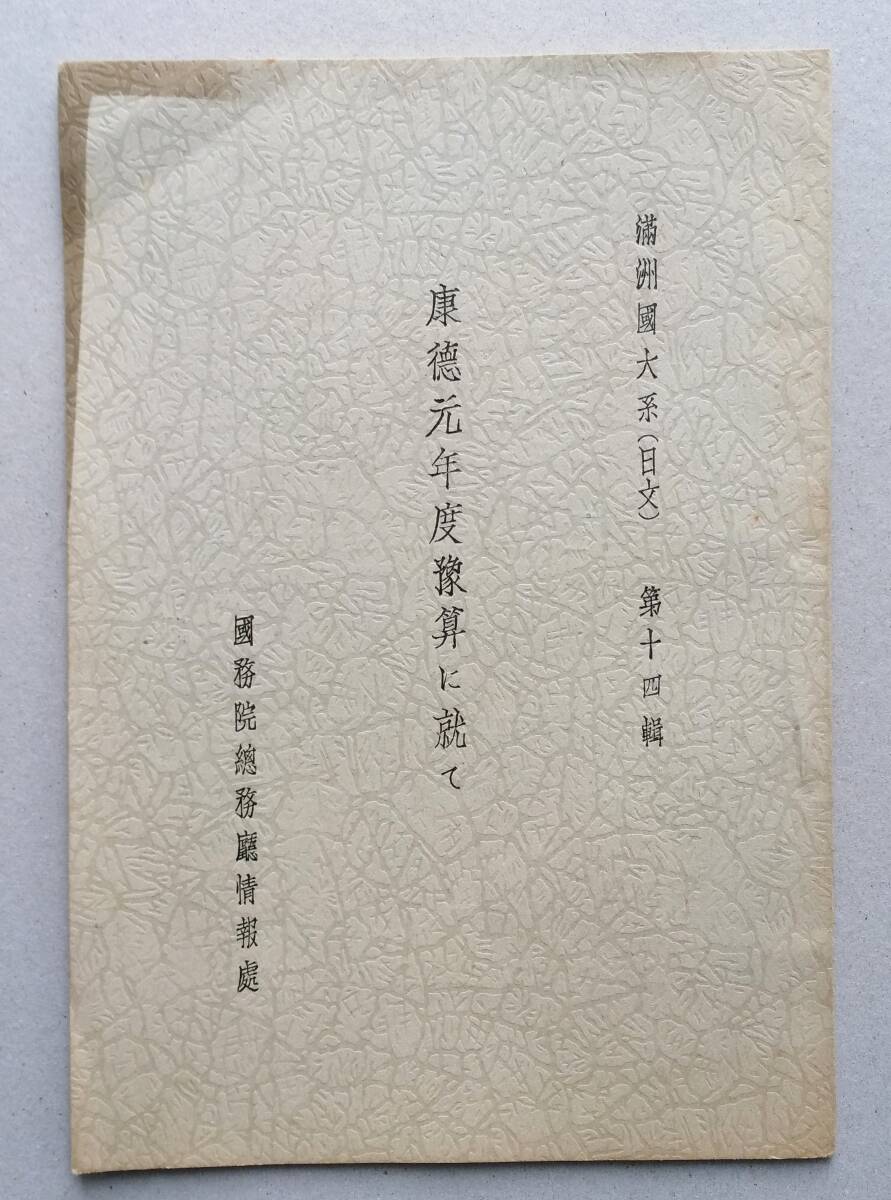 滿洲國大系（日文）　第十四輯
康德元年度豫算に就て
國務院總務廳情報處